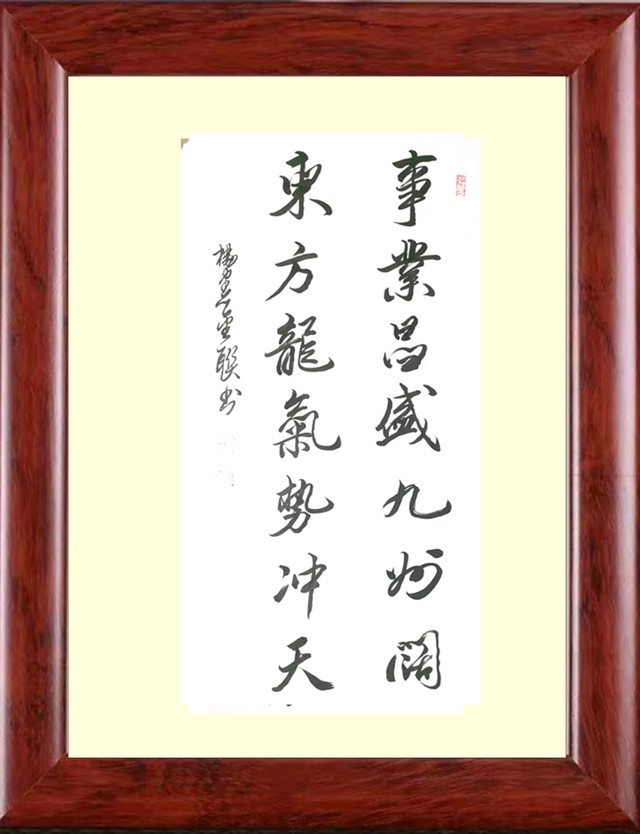 事業昌盛九州闊
東方龍氣勢冲天
聯书